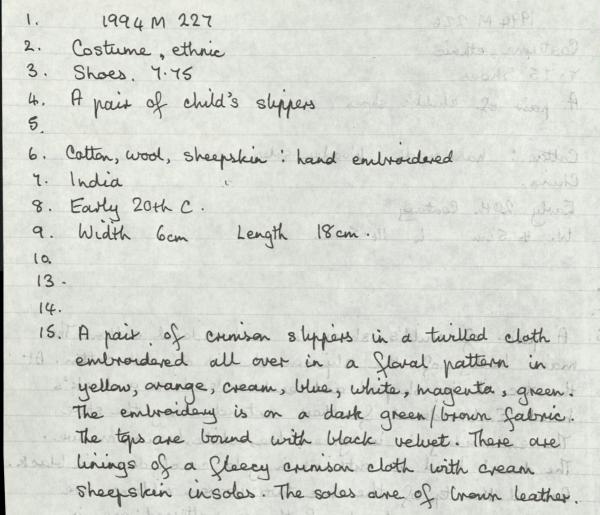 1. 1994 M 227
2. Costume, ethnic
3. Shoes. 7.75
4. A pair of child's slippers
5.
6. Cotton, wool, sheepskin : hand embroidered
7. India
8. Early 20th C.
9. Width 6cm Length 18cm.
10.
13.
14.
15. A pair of crimson slippers in a twilled cloth
embroidered all over in a floral pattern in
yellow, orange, cream, blue, white, magenta, green.
The embroidery is on a dark green/brown fabric.
The tops are bound with black velvet. There are
linings of a fleecy crimson cloth with cream
sheepskin insoles. The soles are of brown leather.